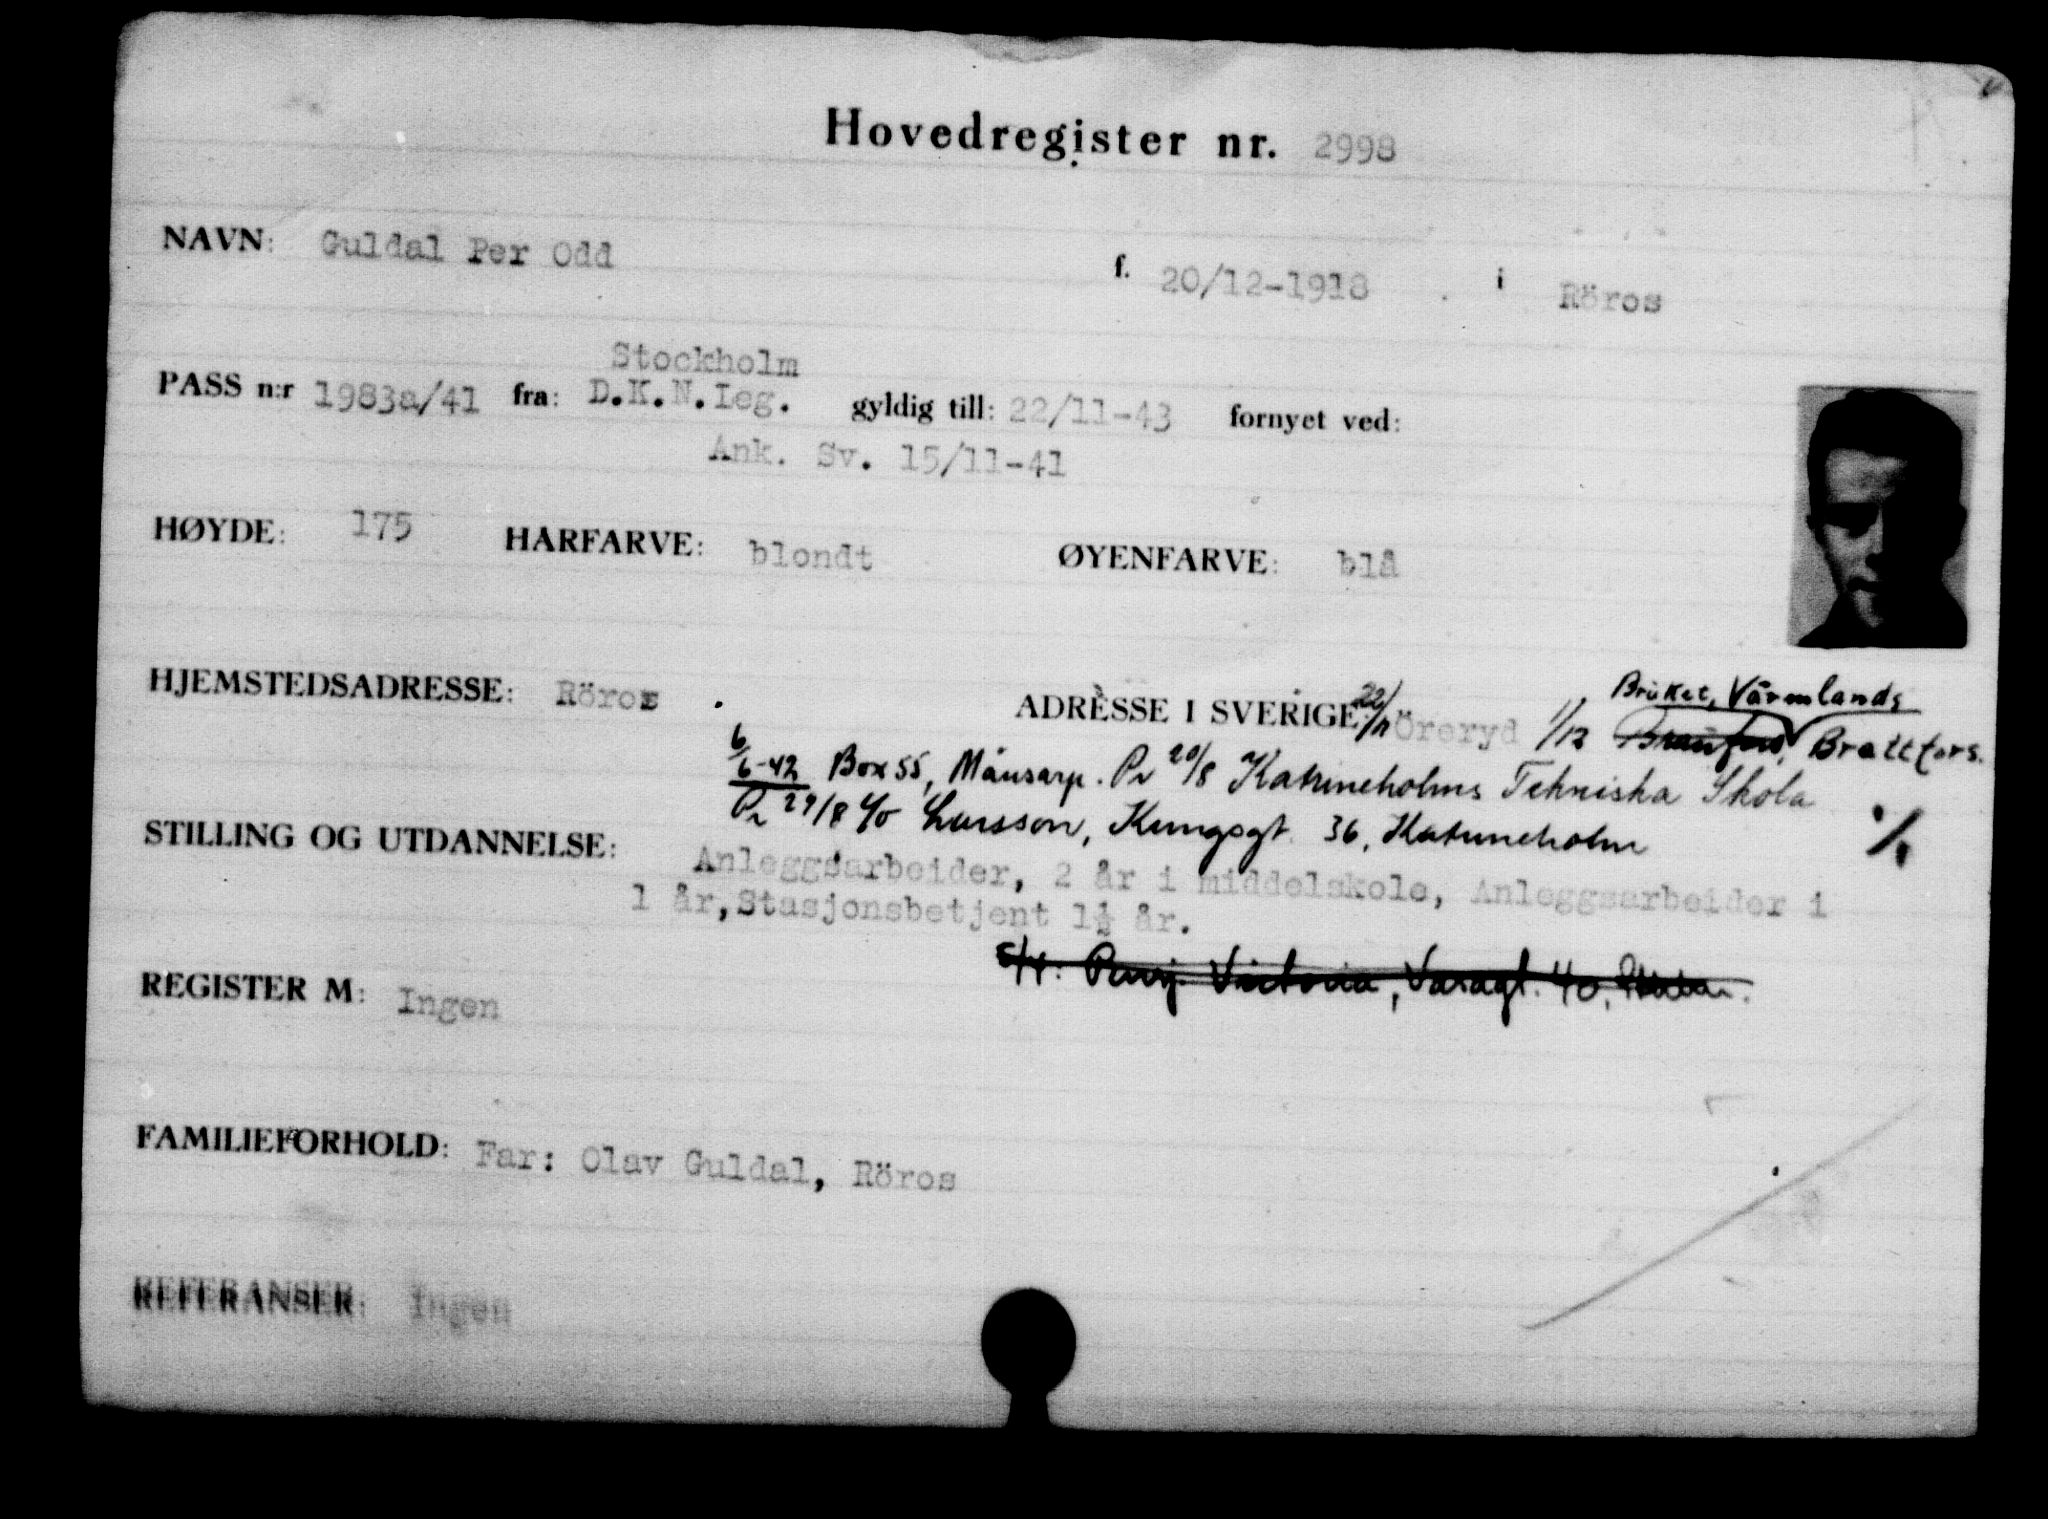 Hovedregister nr. 2998
NAVN: Guldal Per Odd f. 20/12-1918 i Röros
Stockholm
PASS n:r 1983a/41 fra: D.K.N.Leg. gyldig till: 22/11-43 fornyet ved:
Ank. Sv. 15/11-41
HØYDE: 175 HARFARVE: blondt ØYENFARVE: blå
Bruket, Värmlands
HJEMSTEDSADRESSE: Röros ADRESSE I SVERIGE: 22/11 Öreryd 1/12 Brattfors.
6/6-42 Box 55, Månsarp. Pr 20/8 Katrineholms Tekniska Skola
Pr 29/8 c/o Larsson, Kungsgt. 36, Katrineholm
STILLING OG UTDANNELSE: Anleggsarbeider, 2 år i middelskole, Anleggsarbeider i
1 år, Stasjonsbetjent 1½ år.
Victoria, Vasagt. 40,
REGISTER M: Ingen
FAMILIEFORHOLD: Far: Olav Guldal, Röros
REFERANSER: Ingen